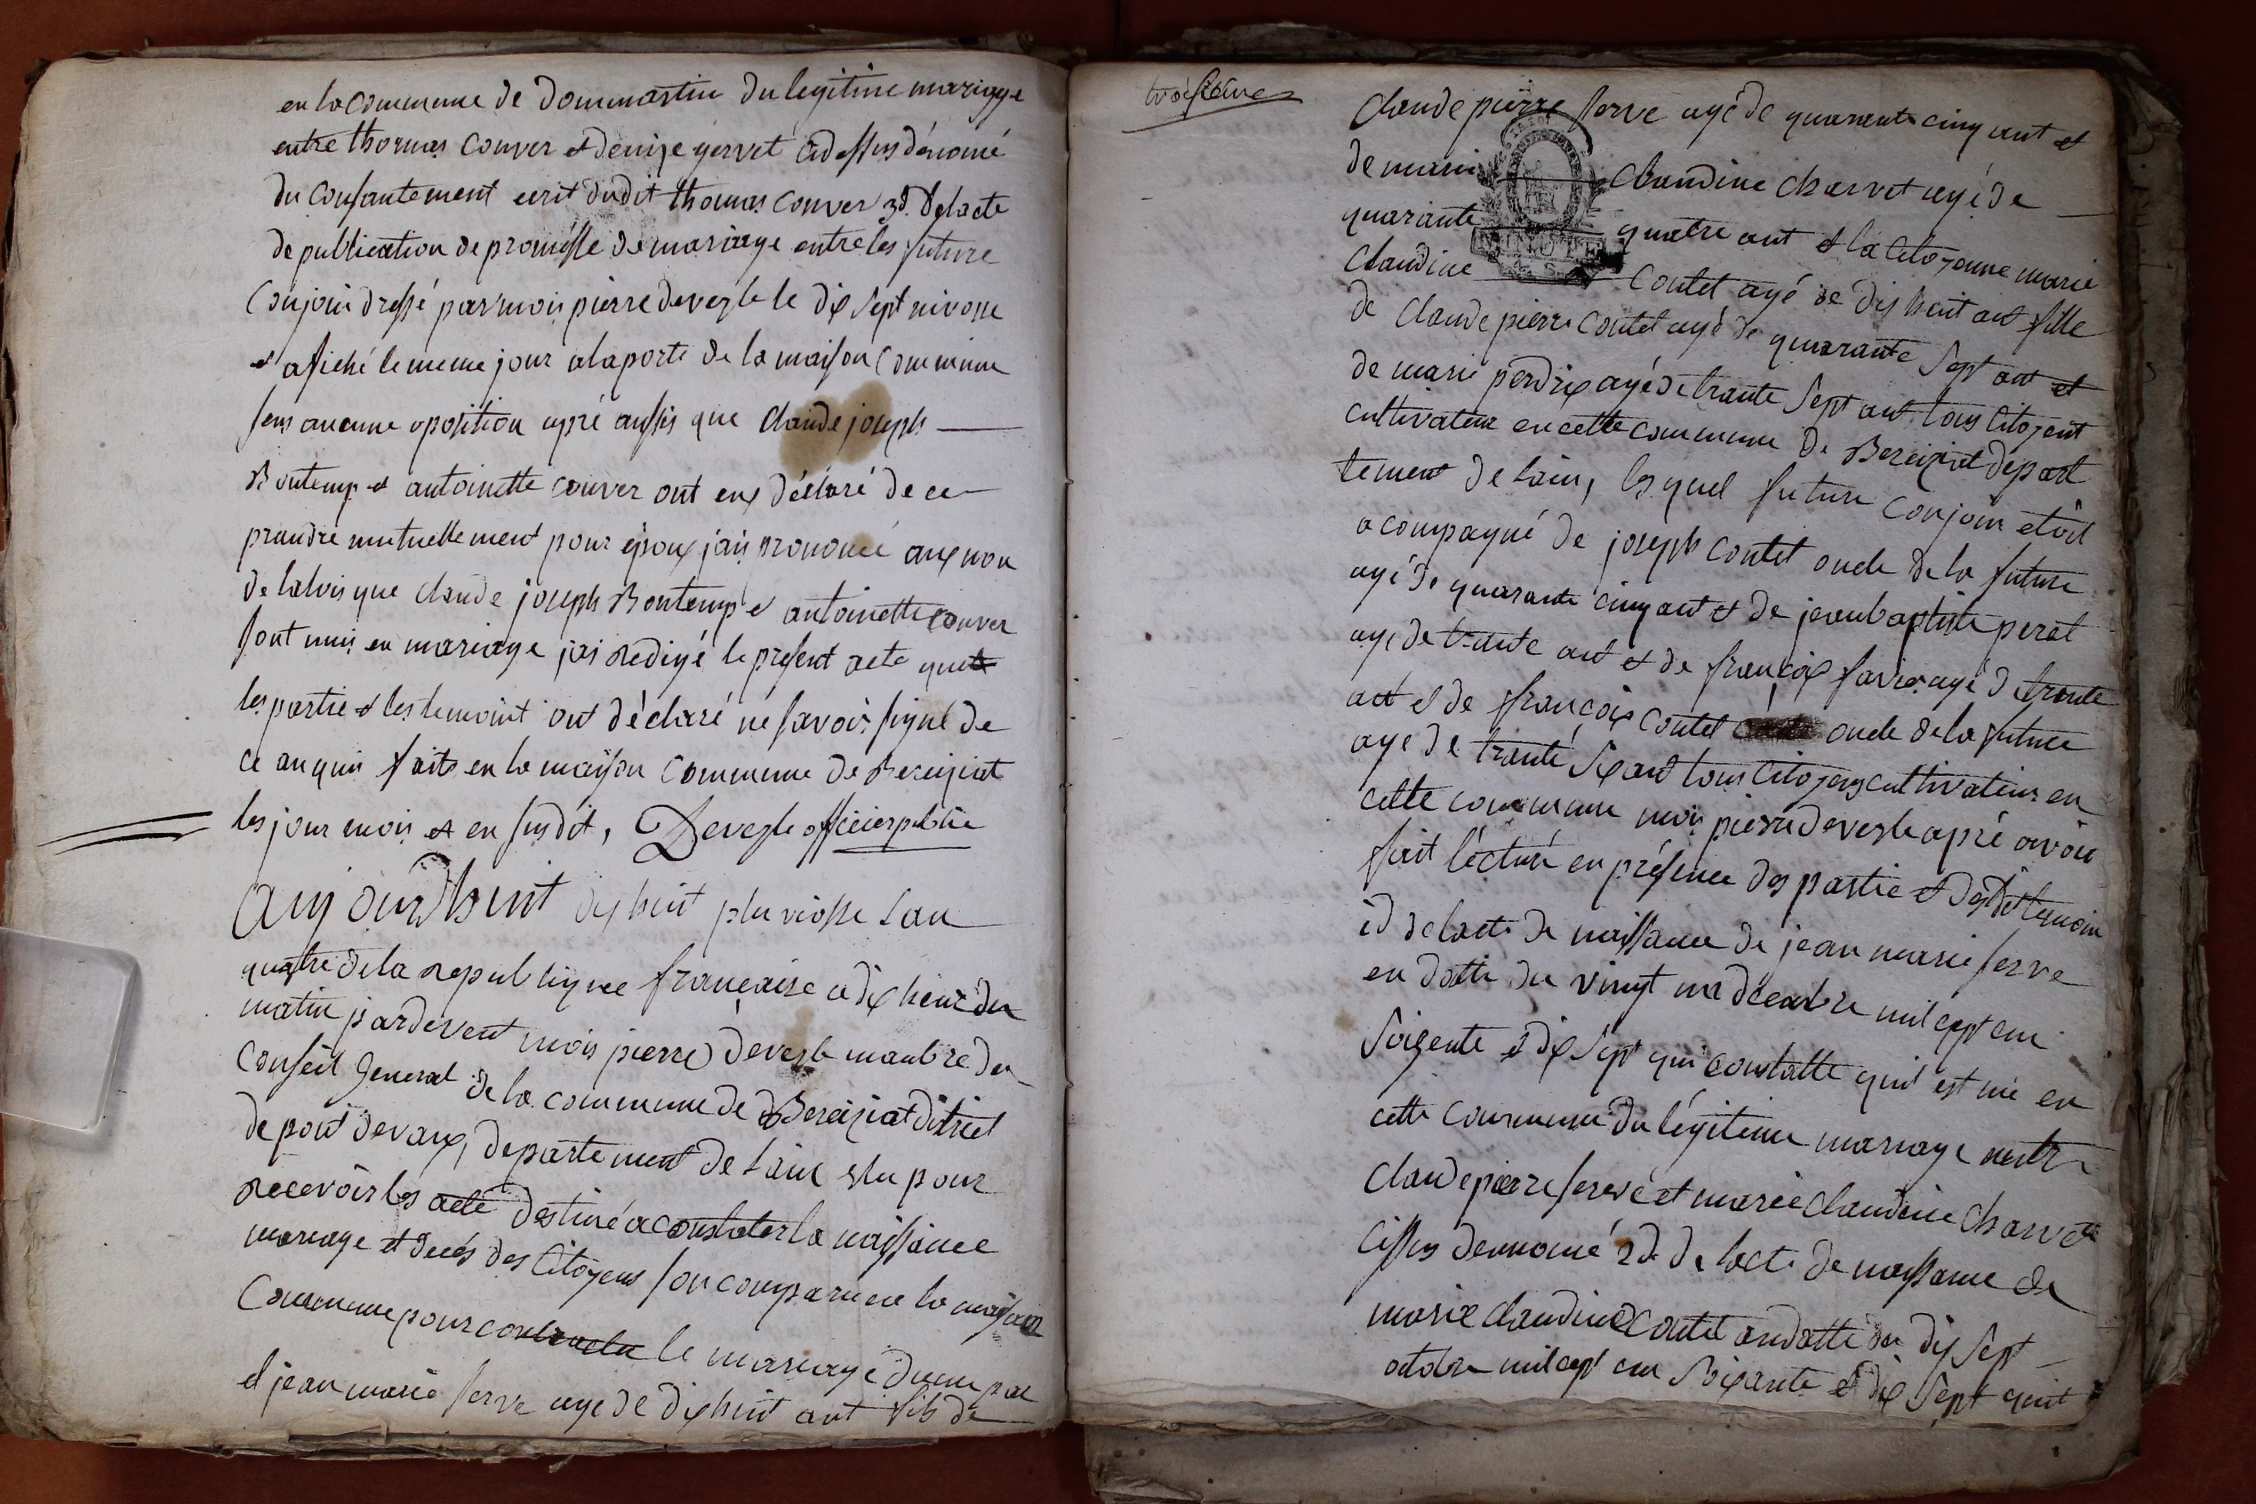 en la commune de dommartin du legitime mariage
entre thomas Conver et denize gervet cidessus dénomé
du consantement ecrit dudit thomas Conver 3d. delacte
de publication de promésse de mariage entre les future
Conjoin dressé par mois pierre devesle le dix sept nivosse
et afiché le meme jour a la porte de la maison Commune
sens aucune oposition apré aussis que Claude joseph
Bontemp et antoinette conver ont eux déclaré de ce
prandre mutuellement pour epoux jais prononcé aux non
de lalois que claude joseph Bontemp et antoinette conver
sont unis en mariage jai redigé le present acte que
les partie et les temoint ont déclaré ne savoir signé de
ce anquis faits en la maison Commune de Bereiziat
les jour mois et en susdit, Devesle officier public
Aujourdhuit dix huit pluviosse lan
quatre de la republique française a dix heur du
matin pardevent mois pierre devesle manbre du
Conseil General de la commune de Bereiziat ditrict
de pont devaux, departement de lain elu pour
recevoir les acte destiné a constater la naissance
mariage et decés des Citoyens son comparu en la maison
Commune pour contracter le mariage dunne par
et jean marie serve agé de dix huit ant fils de
troisieme
Claude pierre serve agé de quarante cinq ant et
de marie Claudine charvet agé de
quarante quatre ant et la Citoyenne marie
Claudine Coutet agé de dix huit ant fille
de Claude pierre Coutet agé de quarante sept ant et
de marie perdrix agé de trante sept ant tous Citoyent
cultivateur en cette commune de Bereiziat depart
tement de lain, les quel future conjoin etoit
acompagné de joseph Coutet oncle de la future
agé de quarante cinq ant et de jean baptiste perat
agé de trante ant et de françois favier agé de trente
ant et de françois Coutet oncle de la future
agé de trante six ant tous Citoyens cultivateur en
cette commune mois pierre devesle apré avoir
fait lécture en présence des partie et desdit temoin
id de lacte de naissance de jean marie serve
en datte du vingt un décenbre mil cept cen
soixente et dix sept qui constatte quil est né en
cette Commune du légitime mariage entre
Claude pierre serve et marie claudine charvet
cissus dennomé 2d de lacte de naissance de
marie claudine Coutet andatte du dix sept
octobre mil cept cen soixante et dix sept quil